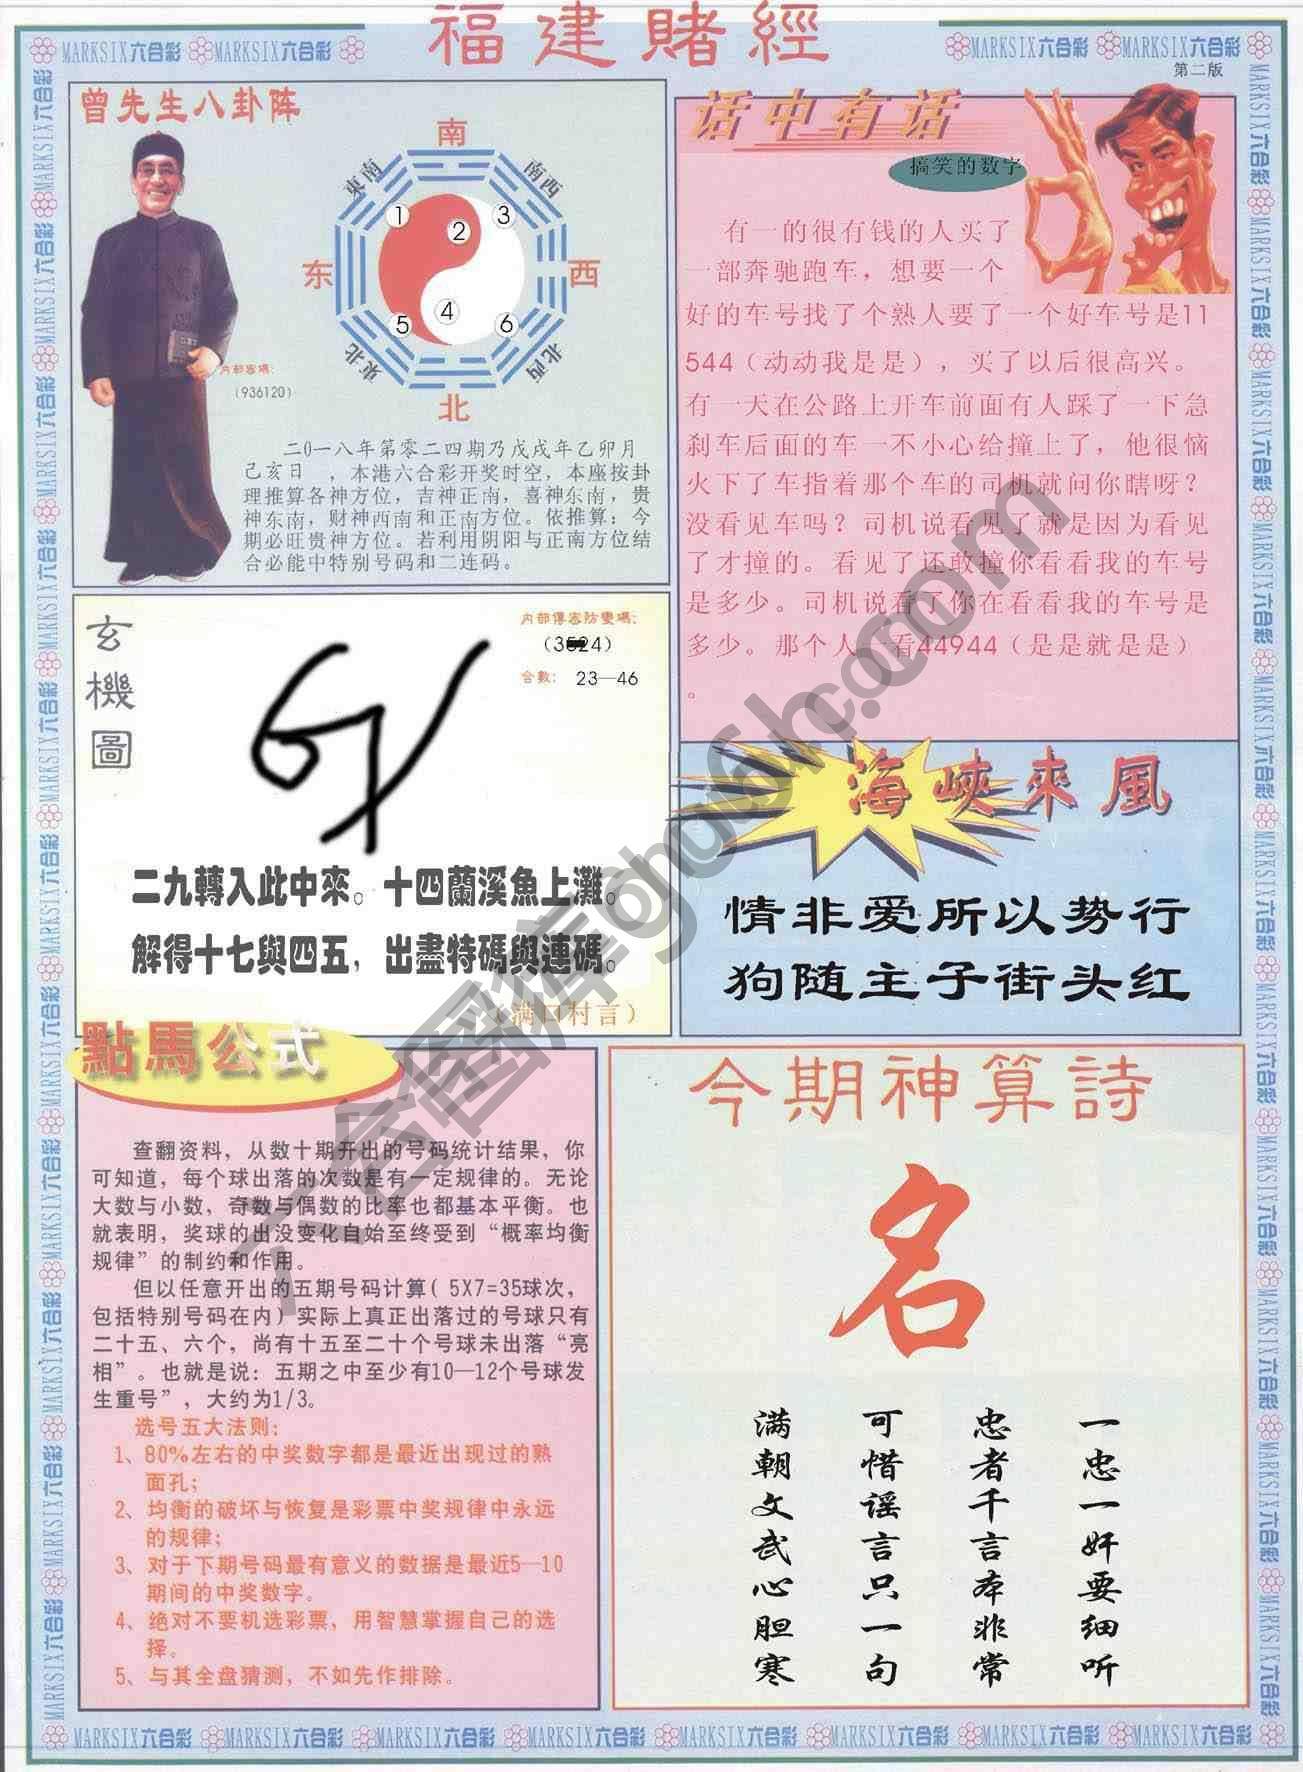 福建賭經
MARKSIX六合彩 MARKSIX六合彩
MARKSIX六合彩 MARKSIX六合彩
第二版
曾先生八卦阵
南
東南
南西
东
西
東北
北西
北
1
2
3
4
5
6
内部密碼:
(936120)
二0一八年第零二四期乃戊戌年乙卯月
己亥日 ,本港六合彩开奖时空,本座按卦
理推算各神方位,吉神正南,喜神东南,贵
神东南,财神西南和正南方位。依推算:今
期必旺贵神方位。若利用阴阳与正南方位结
合必能中特别号码和二连码。
话中有话
搞笑的数字
有一的很有钱的人买了
一部奔驰跑车,想要一个
好的车号找了个熟人要了一个好车号是11
544(动动我是是),买了以后很高兴。
有一天在公路上开车前面有人踩了一下急
刹车后面的车一不小心给撞上了,他很恼
火下了车指着那个车的司机就问你瞎呀?
没看见车吗?司机说看见了就是因为看见
了才撞的。看见了还敢撞你看看我的车号
是多少。司机说看了你在看看我的车号是
多少。那个人一看44944(是是就是是)
。
玄機圖
内部傳密防變碼:
(3524)
合數: 23—46
二九轉入此中來。十四蘭溪魚上灘。
解得十七與四五,出盡特碼與連碼。
(满口村言)
海峽來風
情非爱所以势行
狗随主子街头红
點馬公式
查翻资料,从数十期开出的号码统计结果,你
可知道,每个球出落的次数是有一定规律的。无论
大数与小数,奇数与偶数的比率也都基本平衡。也
就表明,奖球的出没变化自始至终受到“概率均衡
规律”的制约和作用。
但以任意开出的五期号码计算( 5X7=35球次,
包括特别号码在内)实际上真正出落过的号球只有
二十五、六个,尚有十五至二十个号球未出落“亮
相”。也就是说:五期之中至少有10—12个号球发
生重号”,大约为1/3。
选号五大法则:
1、80%左右的中奖数字都是最近出现过的熟
面孔;
2、均衡的破坏与恢复是彩票中奖规律中永远
的规律;
3、对于下期号码最有意义的数据是最近5—10
期间的中奖数字。
4、绝对不要机选彩票,用智慧掌握自己的选
择。
5、与其全盘猜测,不如先作排除。
今期神算詩
名
一忠一奸要细听
忠者千言本非常
可惜谣言只一句
满朝文武心胆寒
MARKSIX六合彩 MARKSIX六合彩 MARKSIX六合彩 MARKSIX六合彩 MARKSIX六合彩 MARKSIX六合彩 MARKSIX六合彩 MARKSIX六合彩